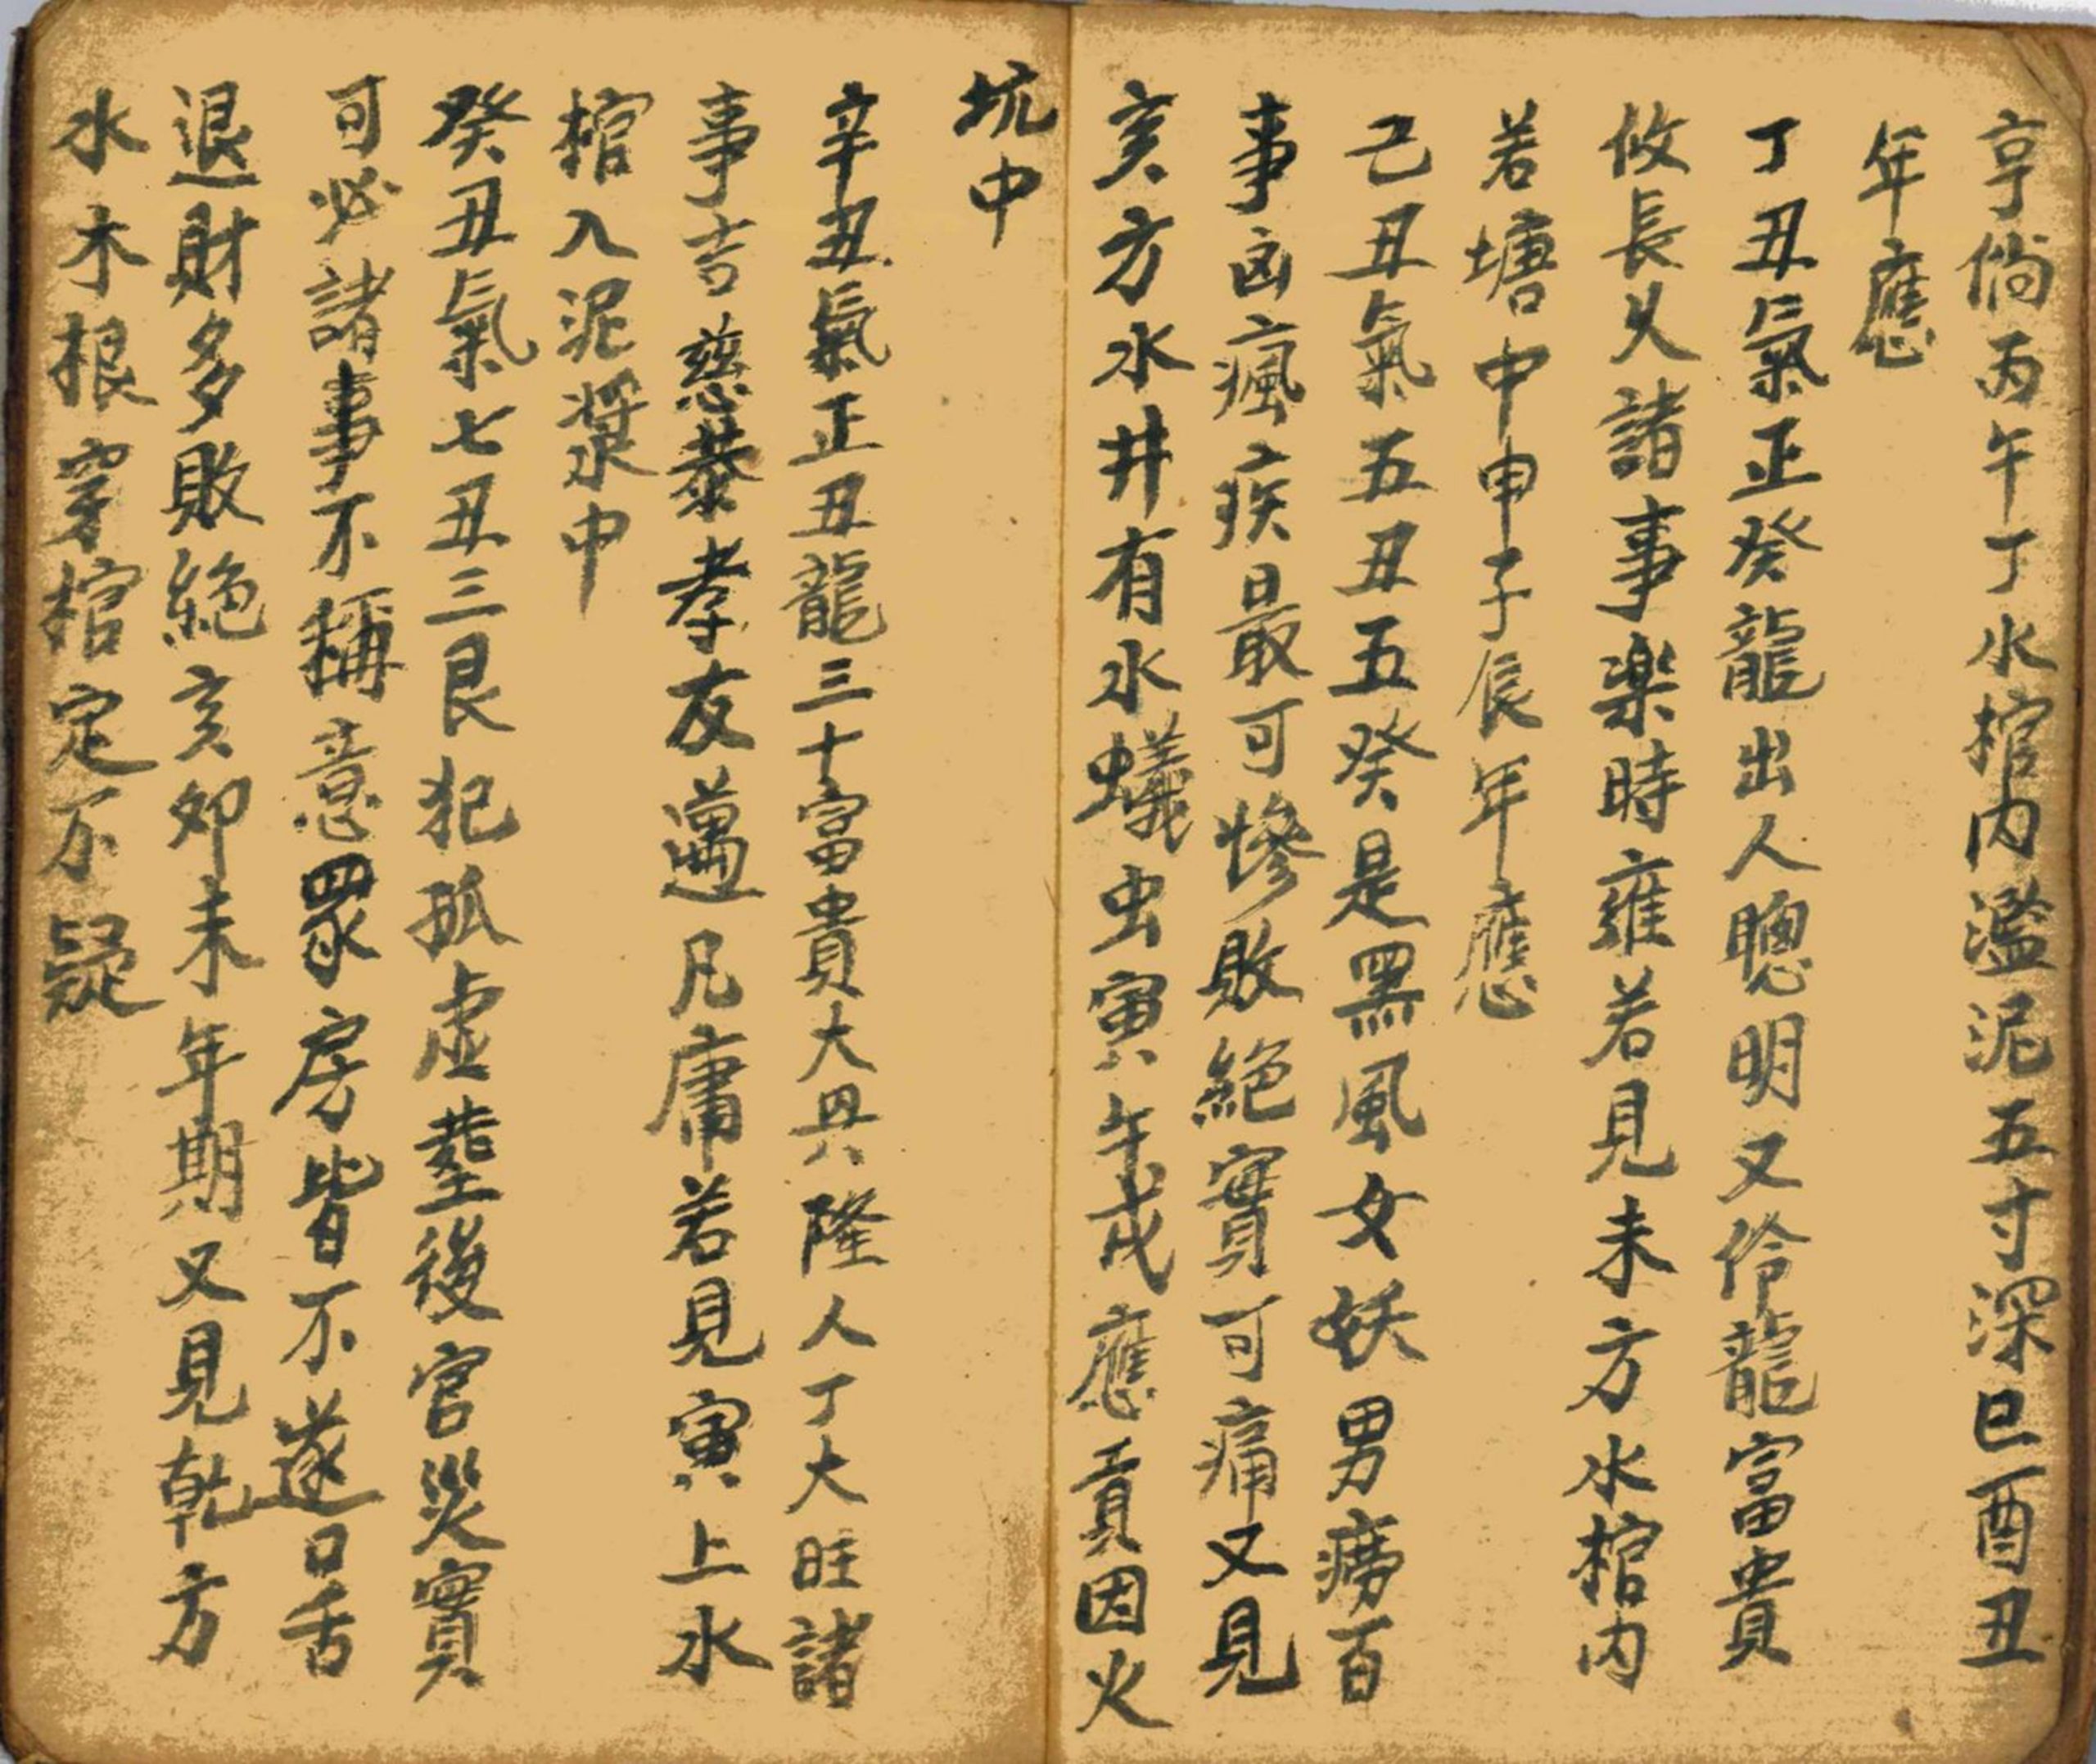 亨倘丙午丁水棺内濫泥五寸深巳酉丑
年應
丁丑氣正癸龍出人聰明又伶龍富貴
攸長久諸事楽時雍若見未方水棺内
若塘中申子辰年應
己丑氣五丑五癸是黑風女妖男癆百
事凶瘋疾最可慘敗絕實可痛又見
亥方水井有水蟻虫寅午戌應賁因火
坑中
辛丑氣正丑龍三十富貴大兴隆人丁大旺諸
事吉慈恭孝友邁凡庸若見寅上水
棺入泥漿中
癸丑氣七丑三艮犯孤虚塟後官災實
可必諸事不稱意眾房皆不遂口舌
退財多敗絕亥卯未年期又見乾方
水木根穿棺定不疑